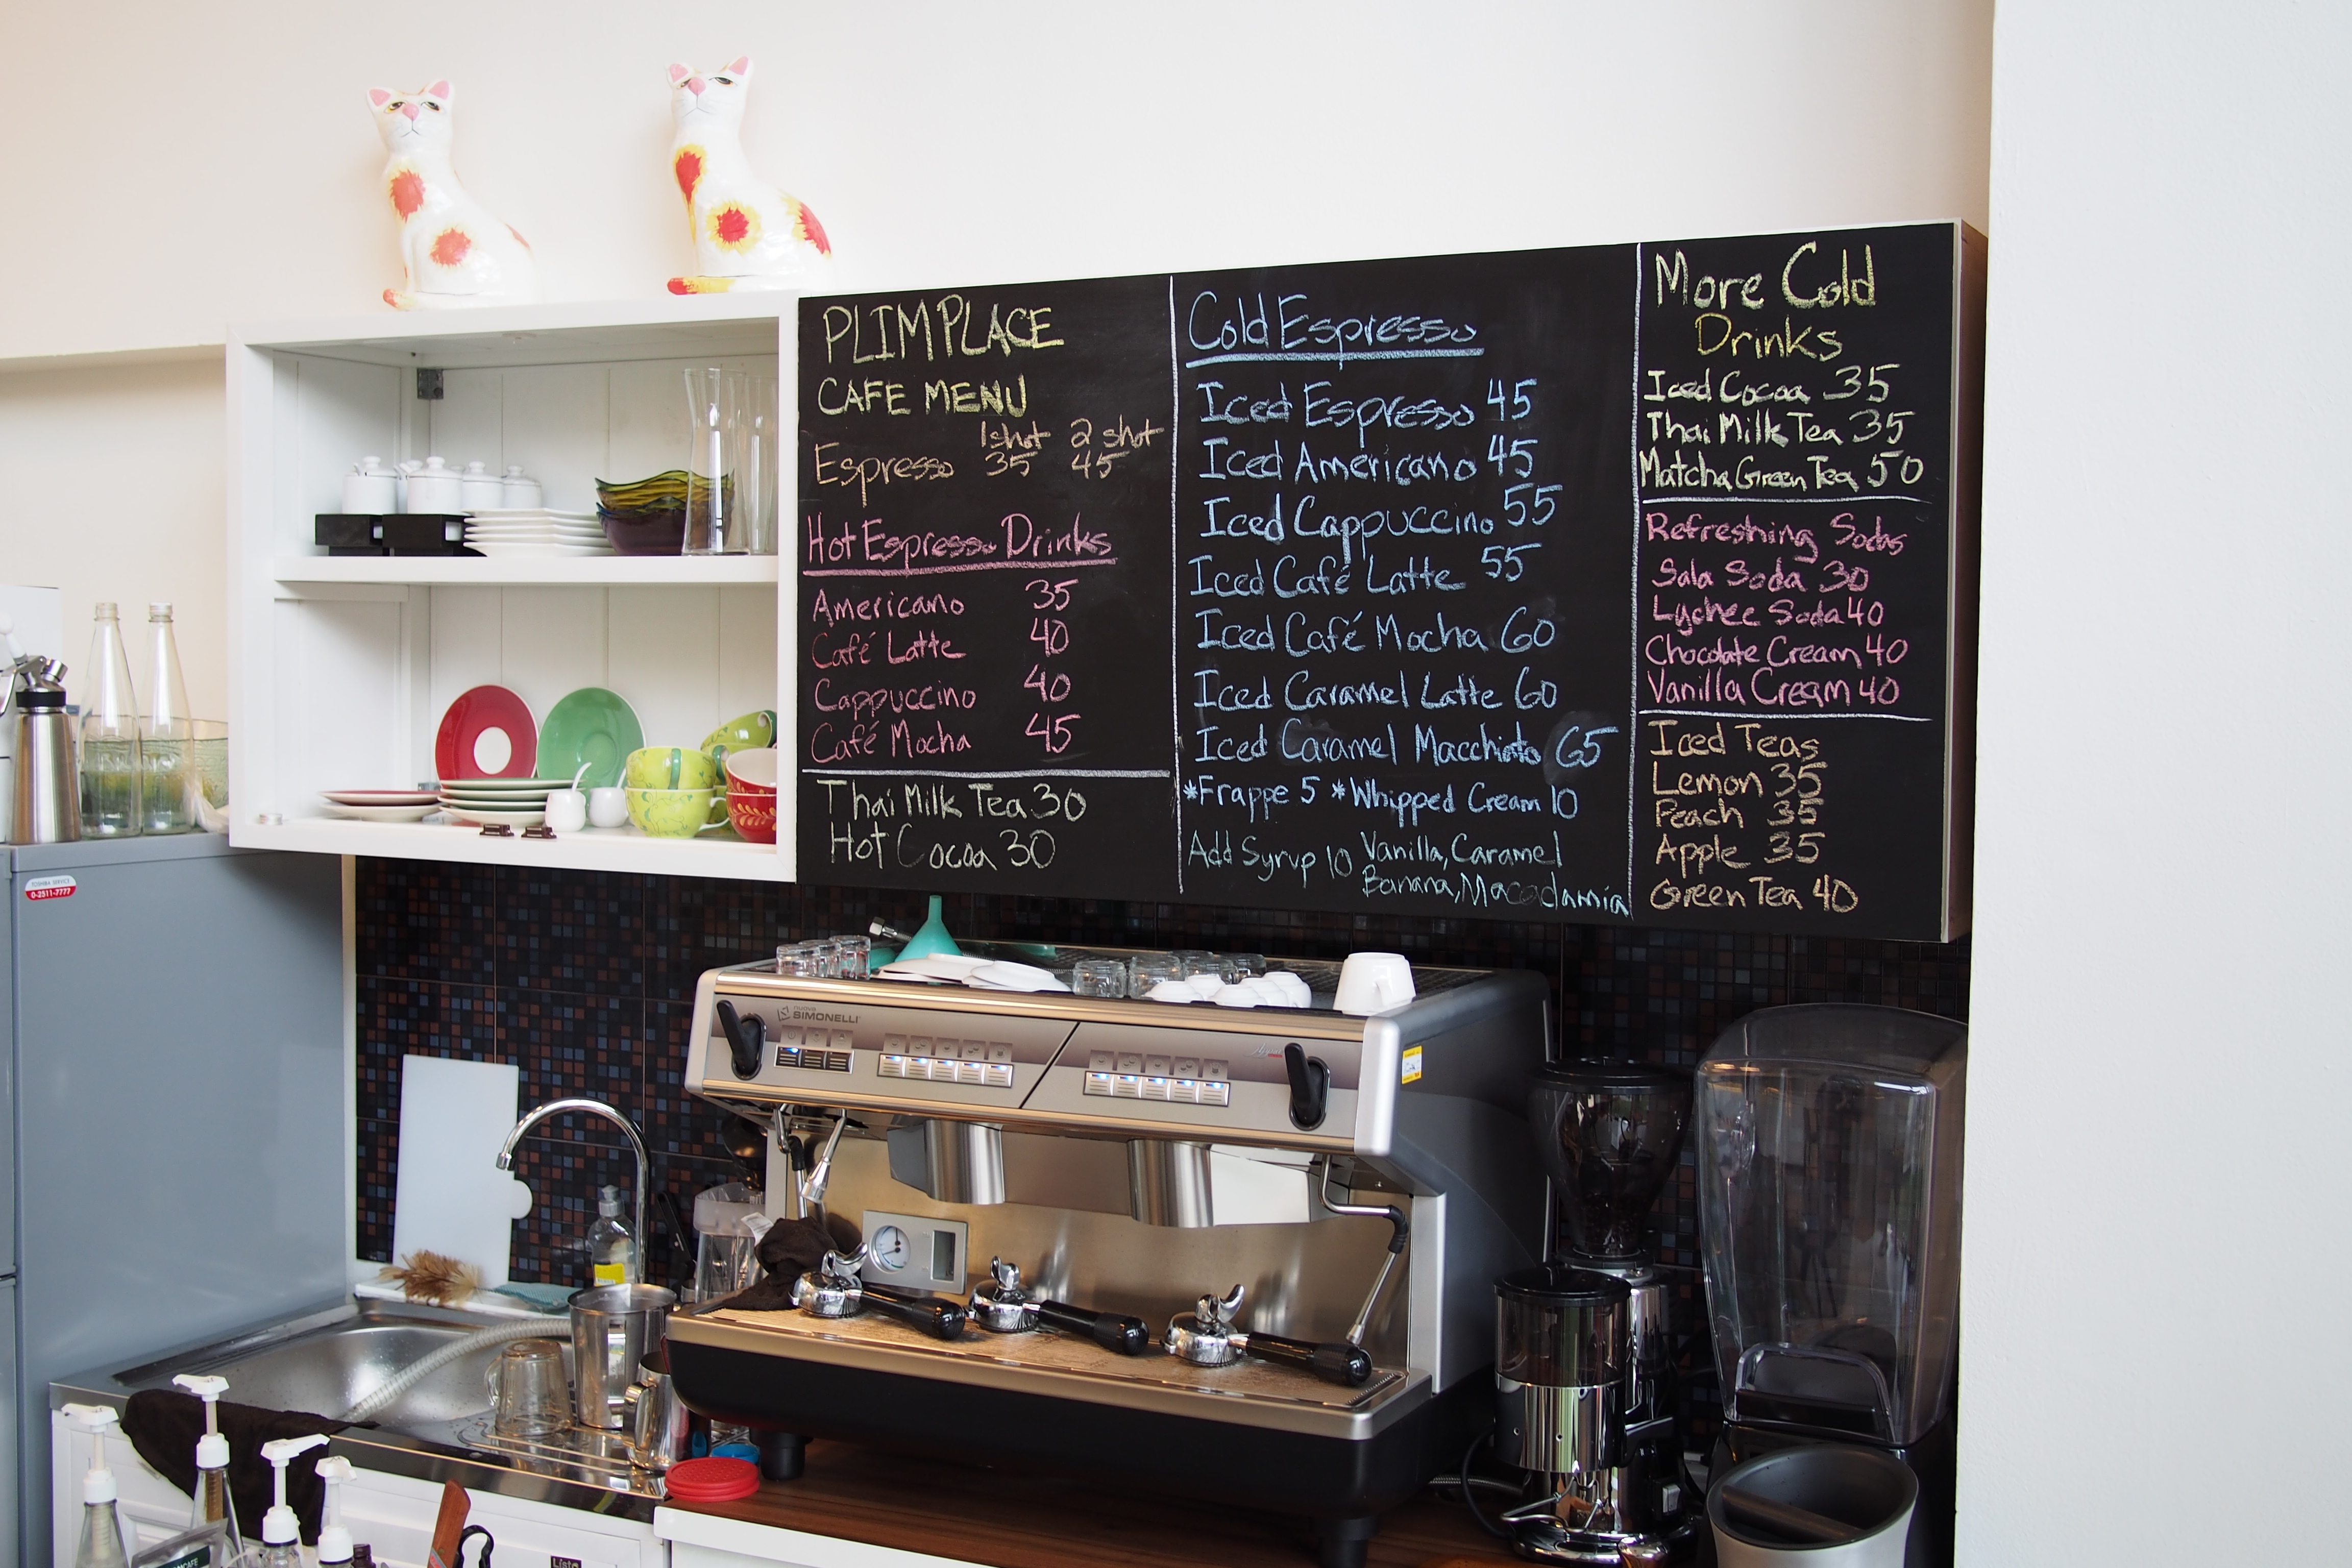 PLIMPLACE
CAFE MENU
1shot 2 shot
Espresso 35 45
Hot Espresso Drinks
Americano 35
Café Latte 40
Cappuccino 40
Café Mocha 45
Thai Milk Tea 30
Hot Cocoa 30
Cold Espresso
Iced Espresso 45
Iced Americano 45
Iced Cappuccino 55
Iced Café Latte 55
Iced Café Mocha 60
Iced Caramel Latte 60
Iced Caramel Macchiato 65
*Frappe 5 *Whipped Cream 10
Add Syrup 10 Vanilla, Caramel
Banana, Macadamia
More Cold
Drinks
Iced Cocoa 35
Thai Milk Tea 35
Matcha Green Tea 50
Refreshing Sodas
Sala Soda 30
Lychee Soda 40
Chocolate Cream 40
Vanilla Cream 40
Iced Teas
Lemon 35
Peach 35
Apple 35
Green Tea 40
TOSHIBA SERVICE
0-2511-7777
nuova
SIMONELLI